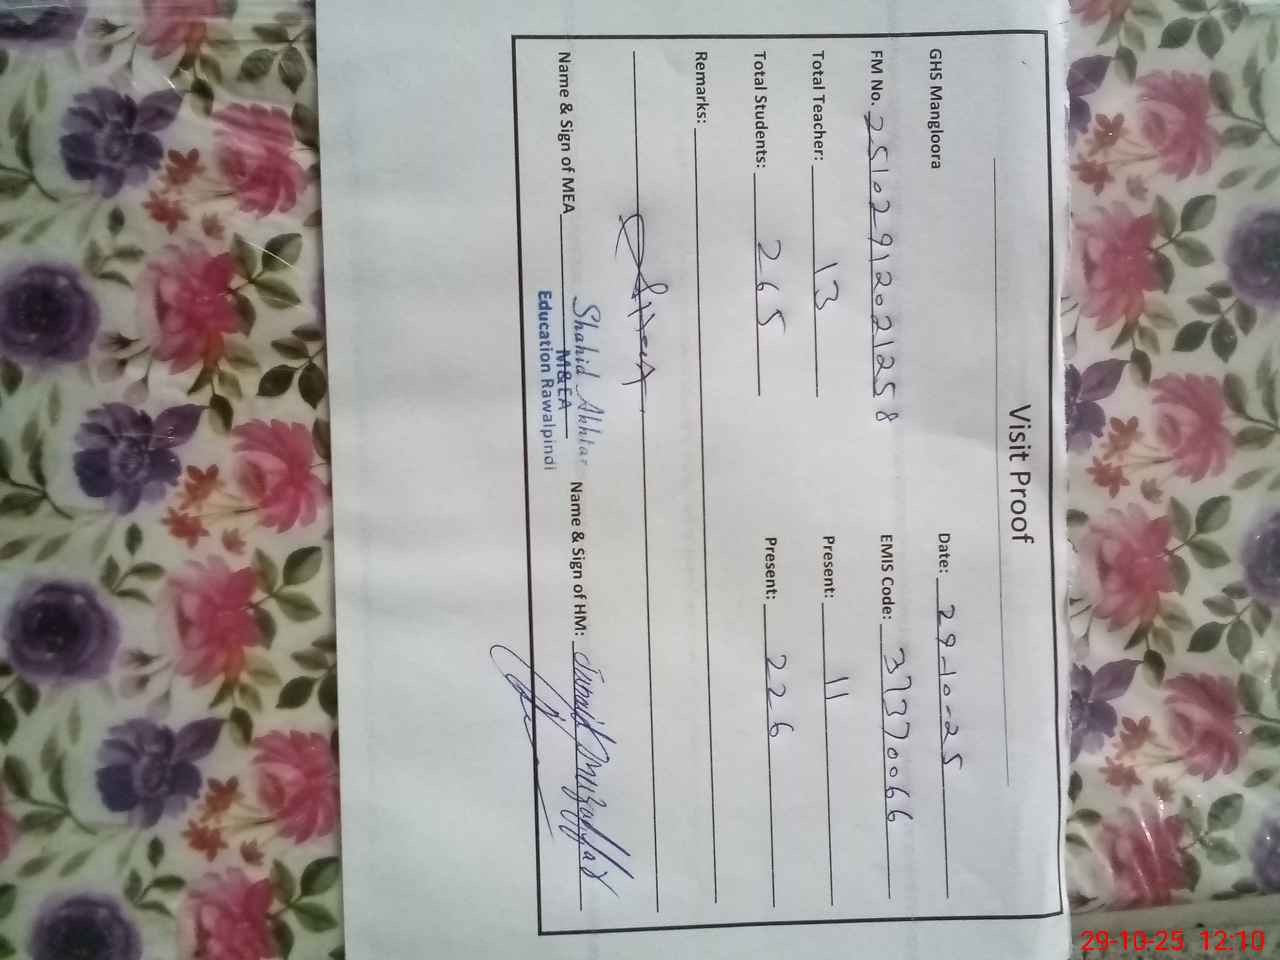 Visit Proof
GHS Mangloora Date: 29-10-25
FM No. 25102912021258 EMIS Code: 37370066
Total Teacher: 13 Present: 11
Total Students: 265 Present: 226
Remarks:
Name & Sign of MEA Shahid Akhtar Name & Sign of HM: Junaid Muzaffar
M&EA
Education Rawalpindi
29-10-25 12:10